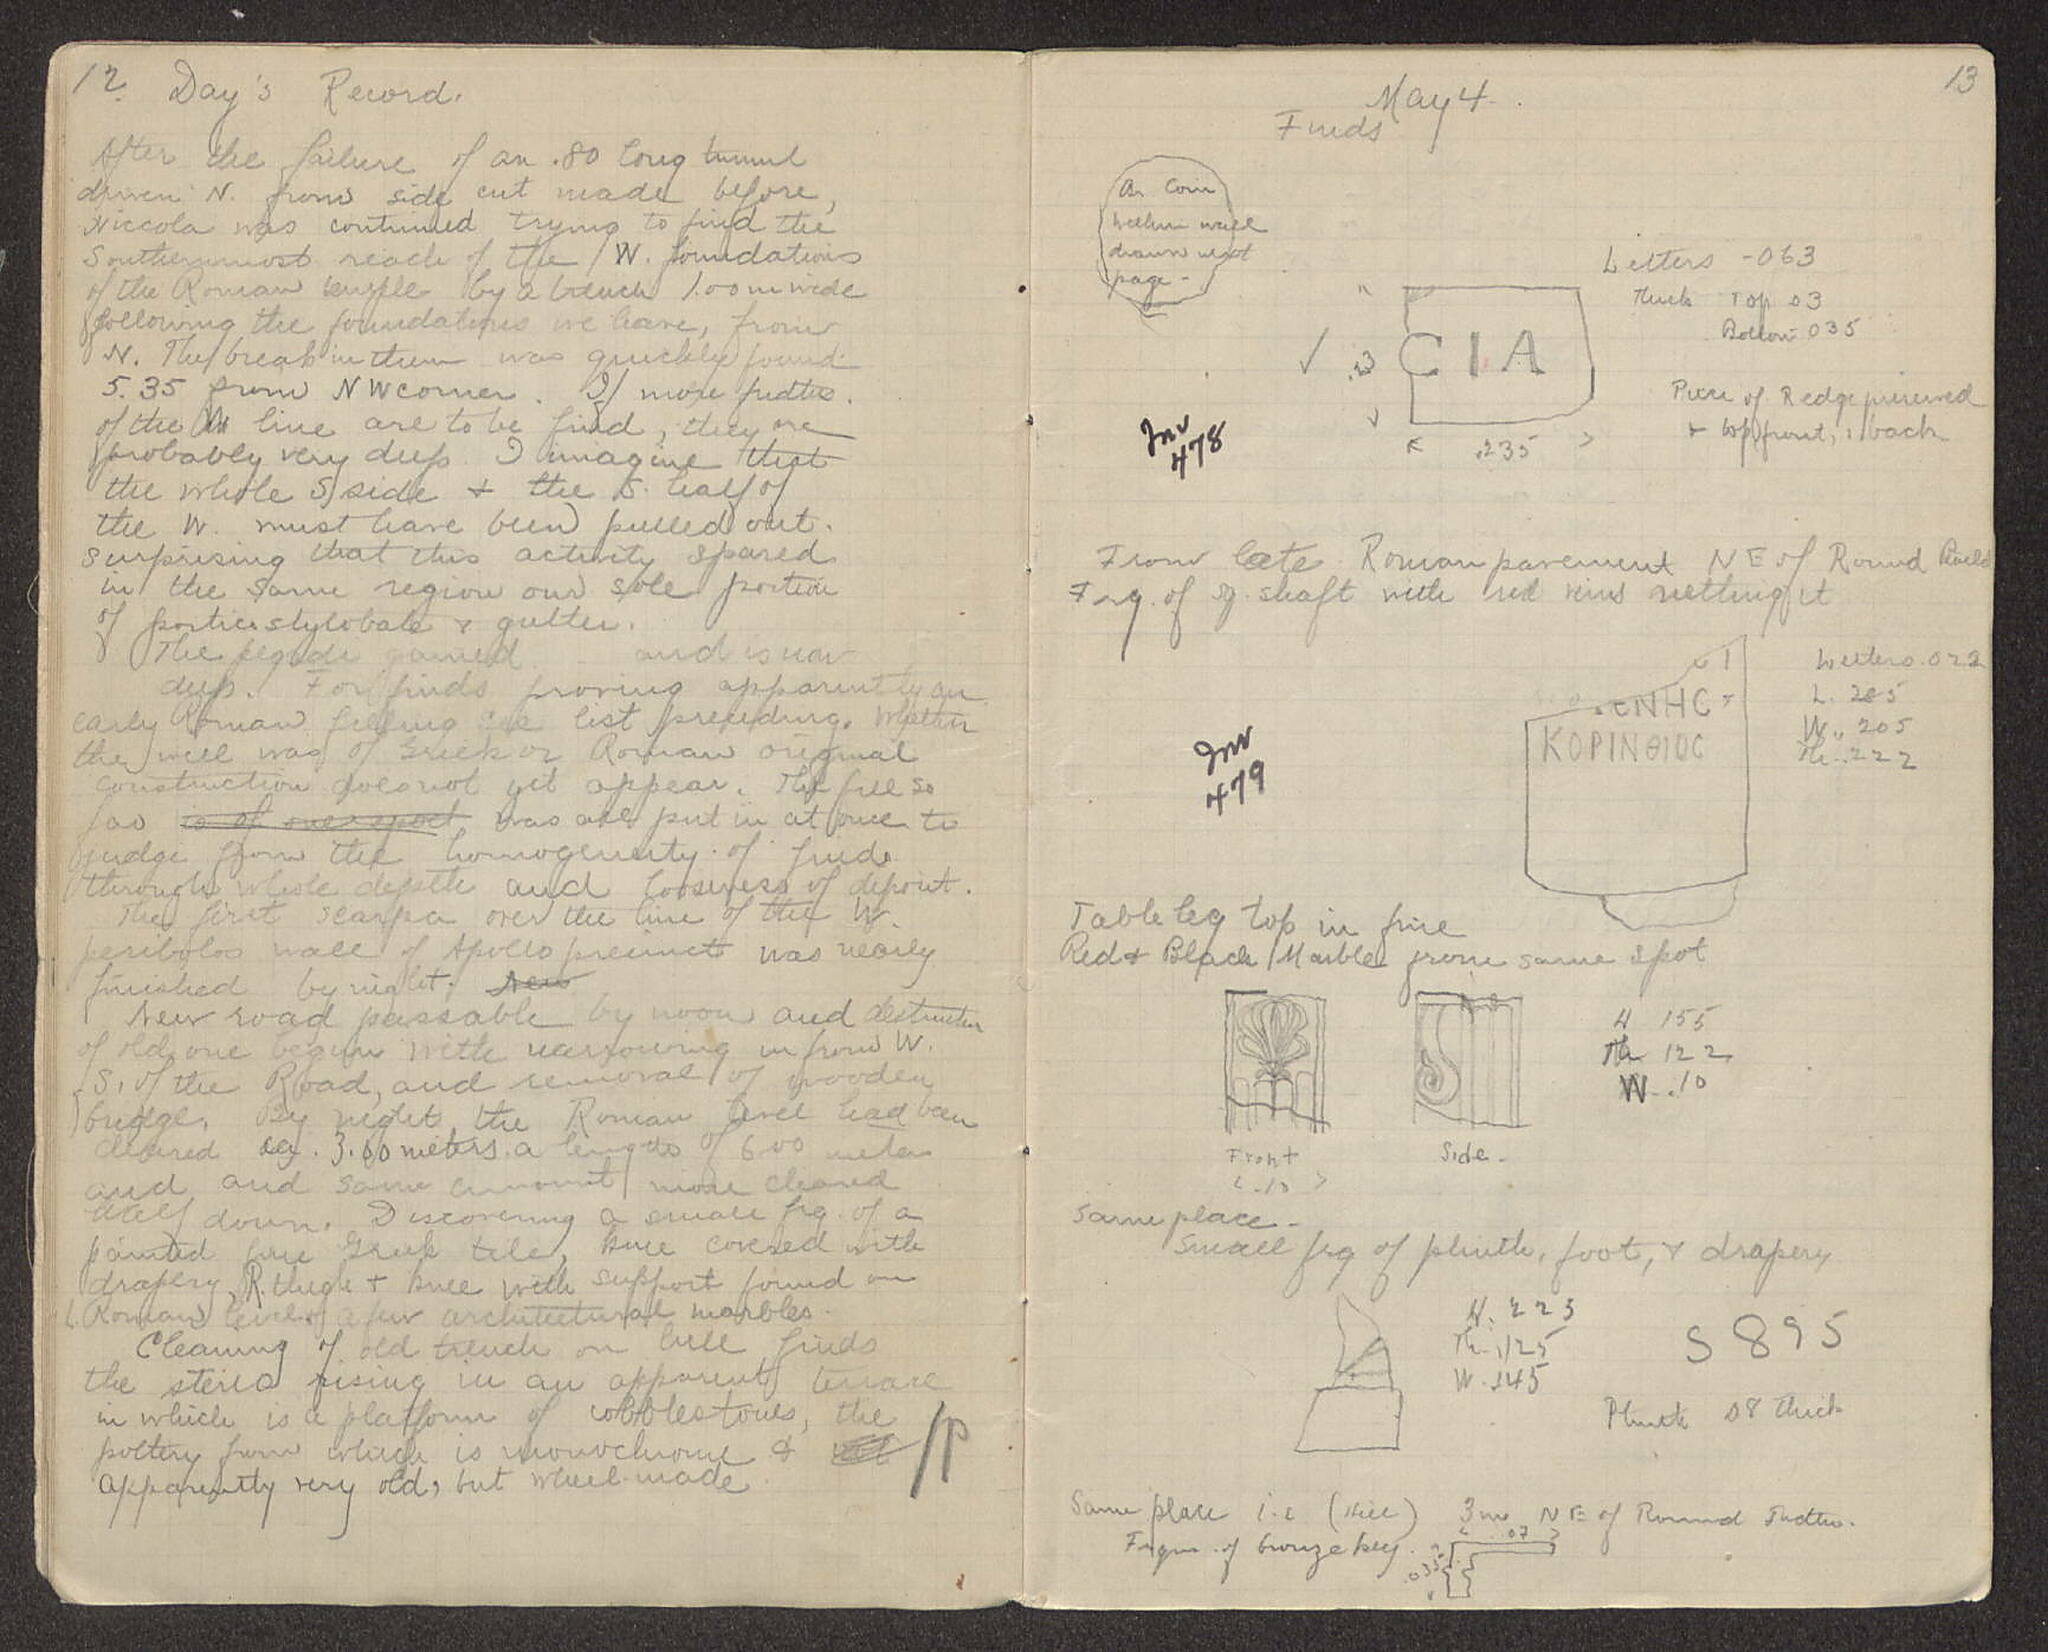 12
Day's Record.
After the failure of an .80 long tunnel
driven N. from side cut made before,
Niccola was continued trying to find the
Southernmost reach of the W. foundations
of the Roman temple by a trench 1.00 m wide
following the foundations we have, from
N. The break in them was quickly found
5.35 from NW corner. If more fndtns.
of the W line are to be find, they are
probably very deep. I imagine that
the whole S side + the S. half of
the W. must have been pulled out.
surprising that this activity spared
in the same region our sole portion
of portico stylobate & gutter.
The gained and is now
deep. For finds proving apparently an
early Roman filling see list preceding. Whether
the well was of Greek or Roman original
construction does not yet appear. The fill so
far is of one epoch was all put in at once to
judge from the homogeneity of finds
through whole depth and looseness of deposit.
The first scarpa over the line of the W.
peribolos wall of Apollo precinct was nearly
finished by night. New
New road passable by noon and destruction
of old one begun with narrowing in from W.
S. of the Road, and removal of wooden
bridge. By night the Roman level had been
cleared 3.00 meters a length of 6.00 meters
and and same amount more cleared
half down. Discovering a small frg. of a
painted fine Greek tile, knee covered with
drapery, R. thigh + knee with support found on
L. Roman level & a few architectural marbles.
Cleaning of old trench on hill finds
the stereo rising in an apparent terrace
in which is a platform of cobblestones, the
pottery from which is monochrome &
apparently very old, but wheel-made
/P
13
May 4.
Finds
Ar Coin
Hellen well
drawn next
page -
Letters -063
Thick Top 03
Bottom 035
CIA
.13
.235
Piece of R edge preserved
+ top, front, & back
Inv
478
From late Roman pavement NE of Round Build
Frg. of sq. shaft with red veins netting it
ΕΝΗC
ΚΟΡΙΝΘΙΟC
Letters .022
L. 285
W. 205
Th. .222
Inv
479
Table leg top in fine
Red & Black Marble from same spot
H 155
Th 122
W .10
Front
.10
Side -
Same place -
Small frg of plinth, foot, & drapery
H. 223
Th .125
W .145
S 895
Plinth 08 thick
Same place i.e (Hill) 3 m NE of Round Fndtn.
Fragm. of bronze key.
.07
.035